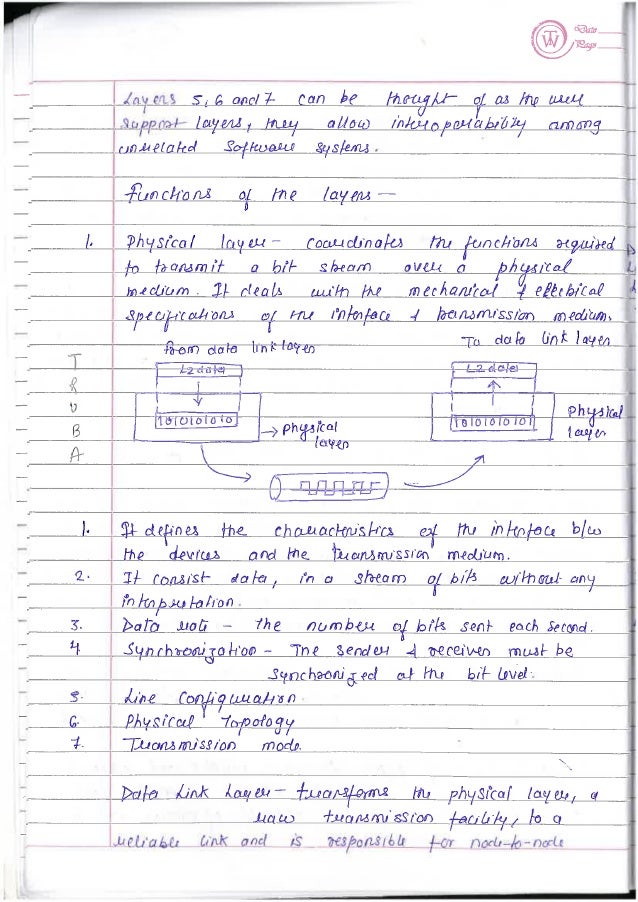 Date
Page
Layers 5, 6 and 7 can be thought of as the user
support layers, they allow interoperability among
unrelated Software systems.
Functions of the layers —
1. Physical layer - coordinates the functions required
to transmit a bit stream over a physical
medium. It deals with the mechanical & electrical
specifications of the interface & transmission medium.
from data link layer
To data link layer
L2 data
L2 data
T
R
U
B
A
10101010 10
→ Physical
layer
10101010 101
Physical
layer
1. It defines the characteristics of the interface b/w
the devices and the transmission medium.
2. It consist data, in a stream of bits without any
interpretation.
3. Data rate - the number of bits sent each second.
4 Synchronization - The sender & receiver must be
Synchronized at the bit level.
5. Line Configuration.
6. Physical Topology
7. Transmission mode.
Data Link Layer - transforms the physical layer, a
raw transmission facility, to a
reliable link and is responsible for node-to-node